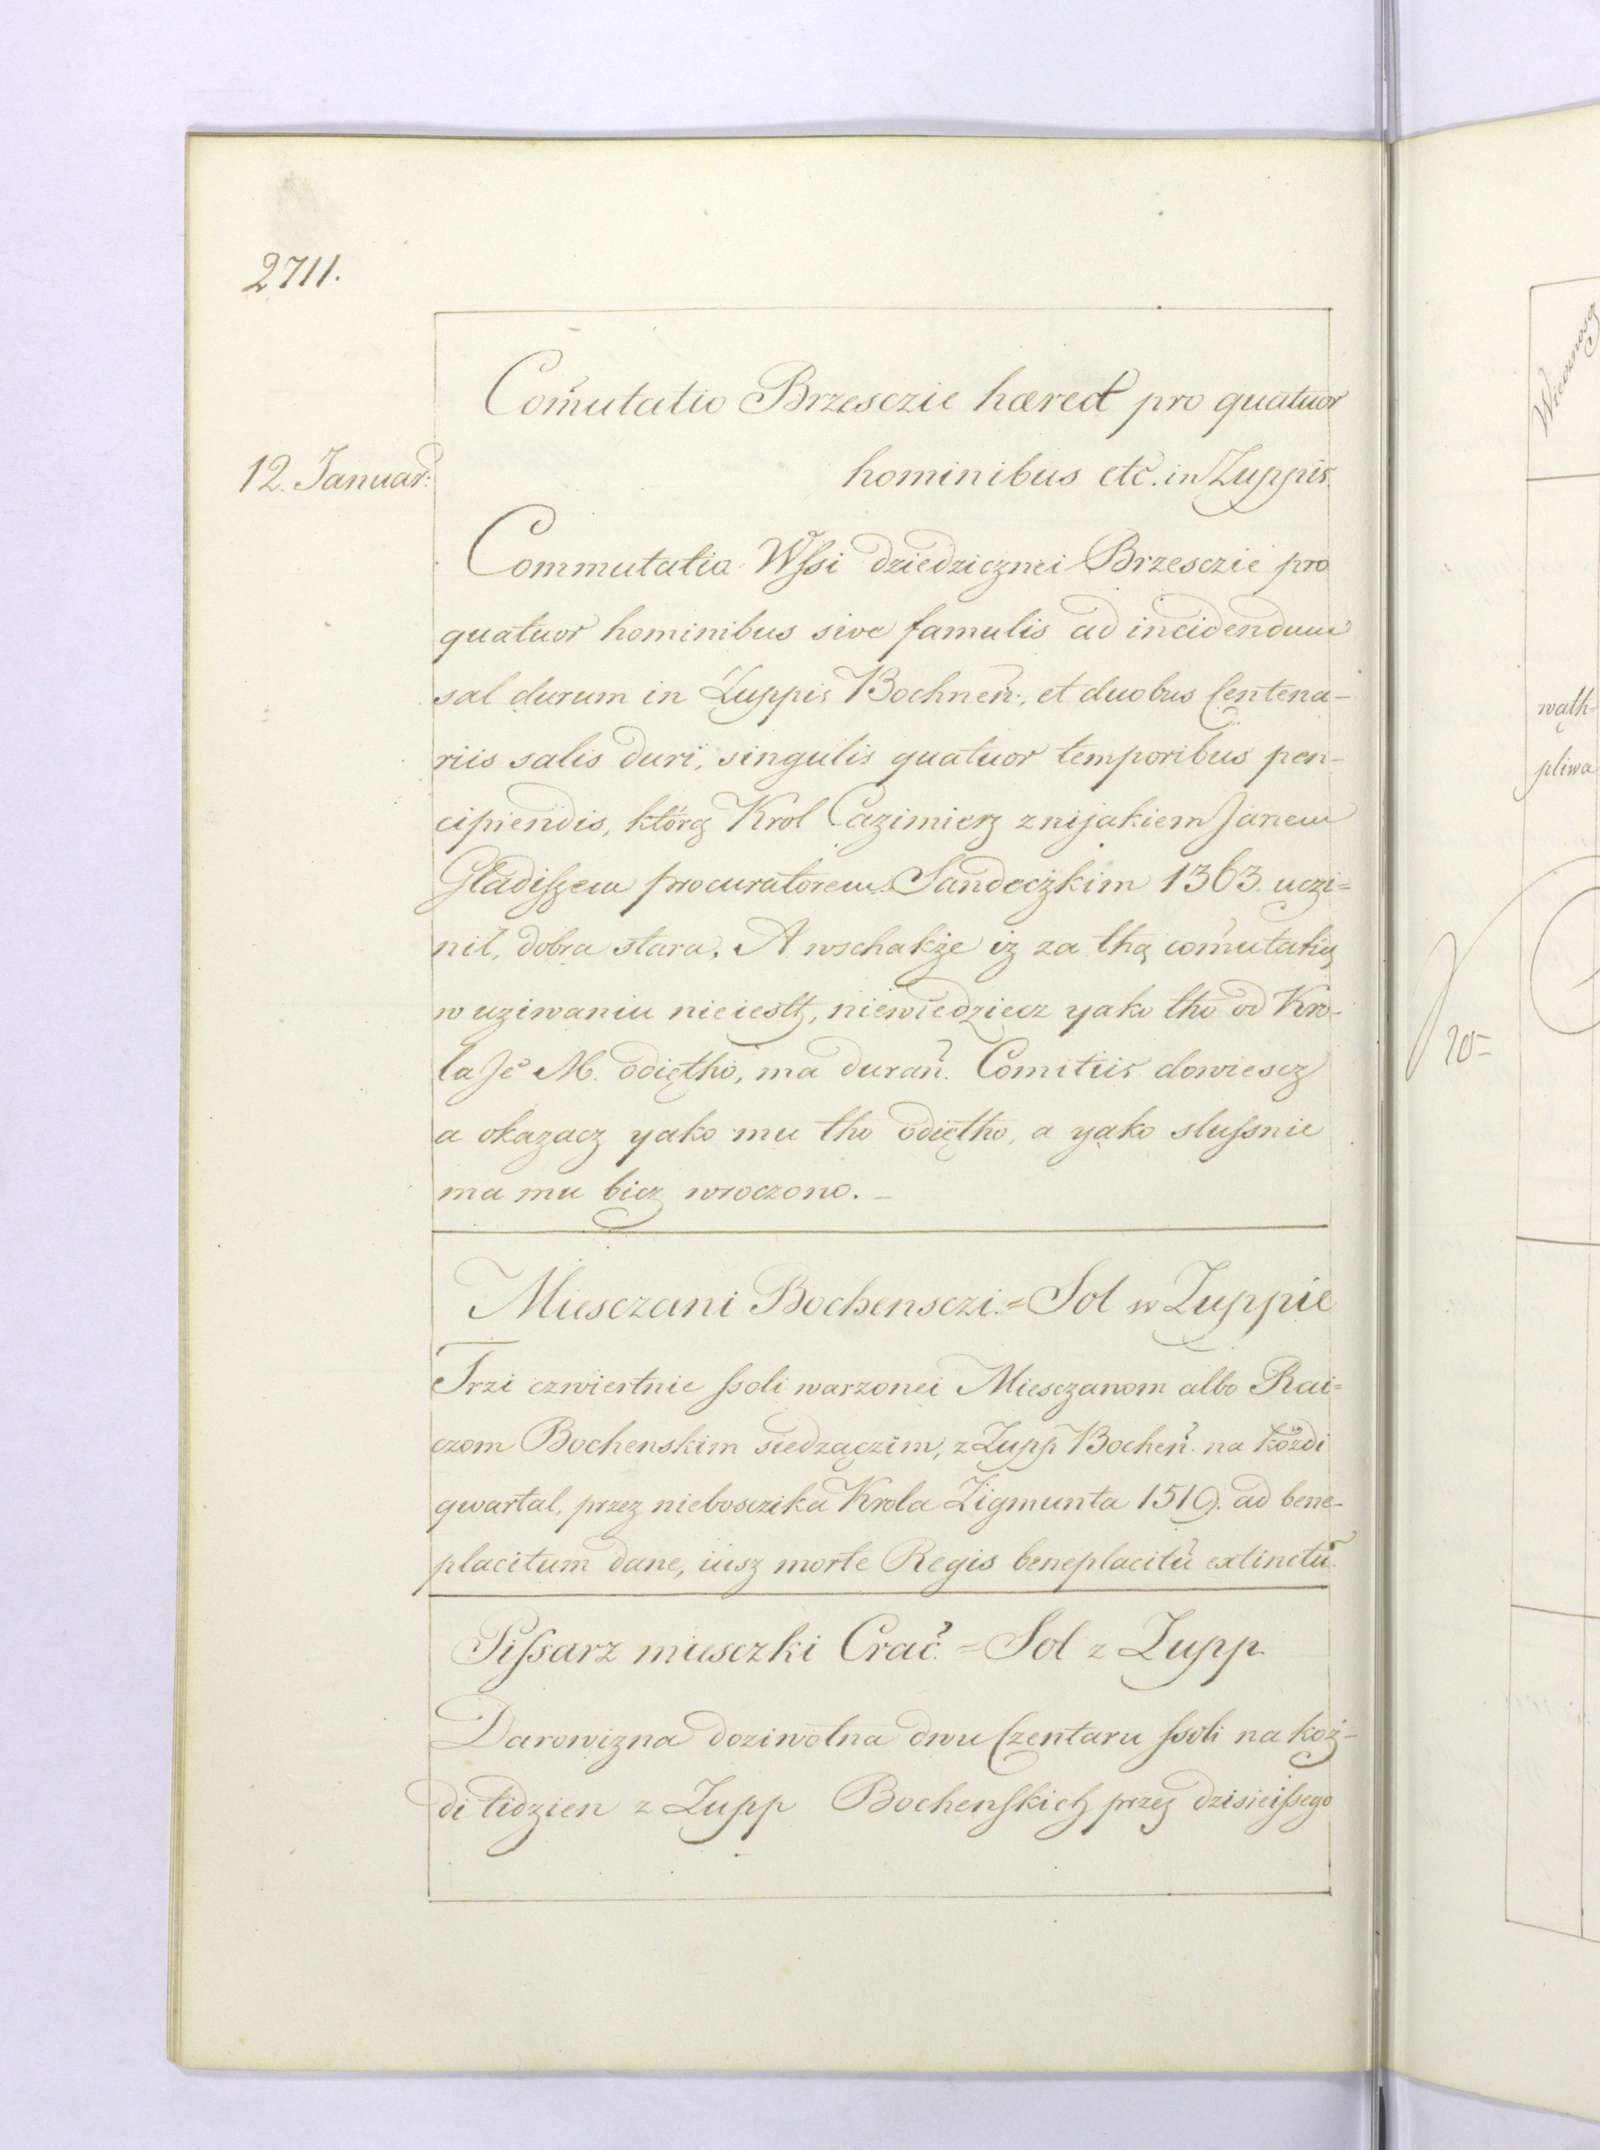 2711.
Com̃utatio Brzesczie hæred pro quatuor
12. Januar:
hominibus etc. in Zuppis.
Commutatia Wſsi dziedzicznei Brzesczie pro
quatuor hominibus sive famulis ad incidendum
sal durum in Zuppis Bochneñ:, et duobus Centena-
riis salis duri, singulis quatuor temporibus per-
cipiendis, którą Krol Cazimierz z nijakiem Janem
Gładiſzem procuratorem Sandeczkim 1363. uczi=
nił, dobra stara. A wschakże iz za thą com̃utatią
w uziwaniu nieiestz, niewiedziecz yako tho od Kro-
la Je° M. odiętho, ma durañ. Comitiis dowiescz
a okazacz yako mu tho odiętho, a yako sluſsnie
ma mu bicz wroczono. _
Miesczani Bochensczi. = Sol w Zuppie
Trzi czwiertnie ſsoli warzonei Miesczanom albo Rai=
czom Bochenskim siedzączim, z Zupp Bocheñ. na kożdi
qwartal, przez nieboszczika Krola Zigmunta 1519. ad bene-
placitum dane, iusz morte Regis beneplacitũ extinctũ.
Piſsarz miesczki Crac̃. = Sol z Zupp.
Darowizna doziwotna dwu Czentaru ſsoli na koż-
di tidzien z Zupp Bochenſkich przez dzisieiſsego
Wieczność
wąth=
pliwa
20-